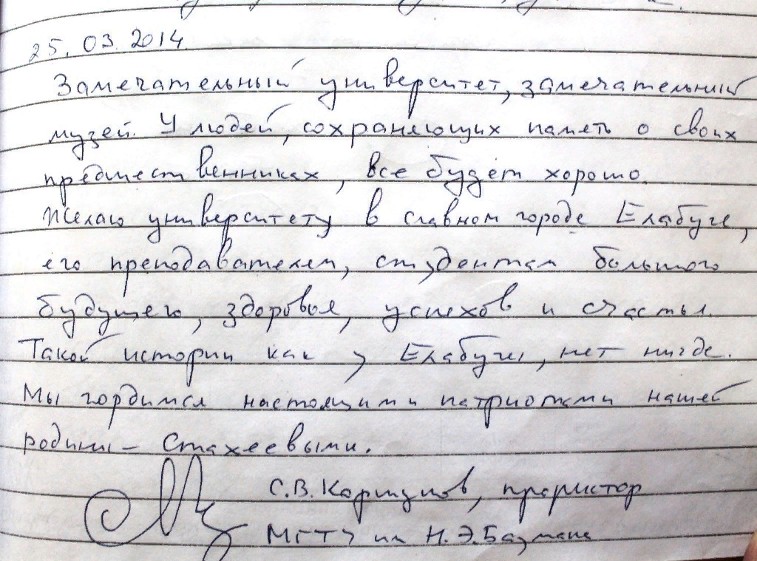 25.03.2014
Замечательный университет, замечательный
музей. У людей, сохраняющих память о своих
предшественниках, все будет хорошо.
Желаю университету в славном городе Елабуге,
его преподавателям, студентам большого
будущего, здоровья, успехов и счастья.
Такой истории как у Елабуги, нет нигде.
Мы гордимся настоящими патриотами нашей
родины – Стахеевыми.
С.В. Коршунов, проректор
МГТУ им Н.Э.Баумана